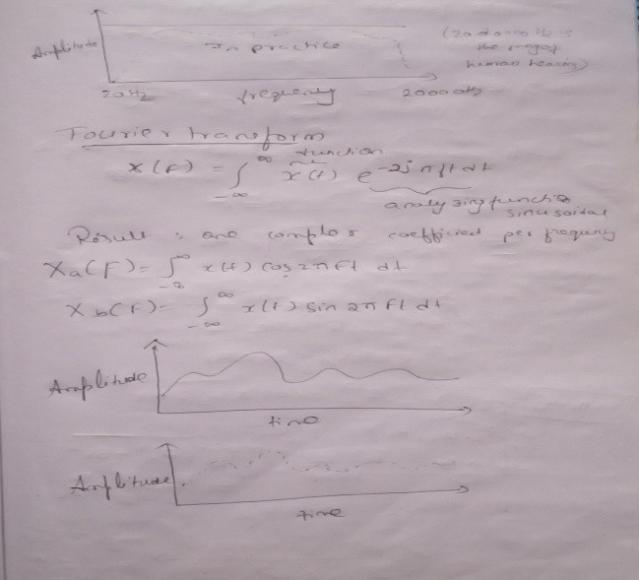 Amplitude
In practice
(20 to 20000 Hz is
the range of
human hearing)
20Hz frequency 20000Hz
Fourier transform
function
X(F) = ∫_{-∞}^{∞} x(t) e^{-2jπft} dt
analyzing function
sinusoidal
Result : one complex coefficient per frequency
Xa(F) = ∫_{-∞}^{∞} x(t) cos 2πFt dt
Xb(F) = ∫_{-∞}^{∞} x(t) sin 2πFt dt
Amplitude
time
Amplitude
time